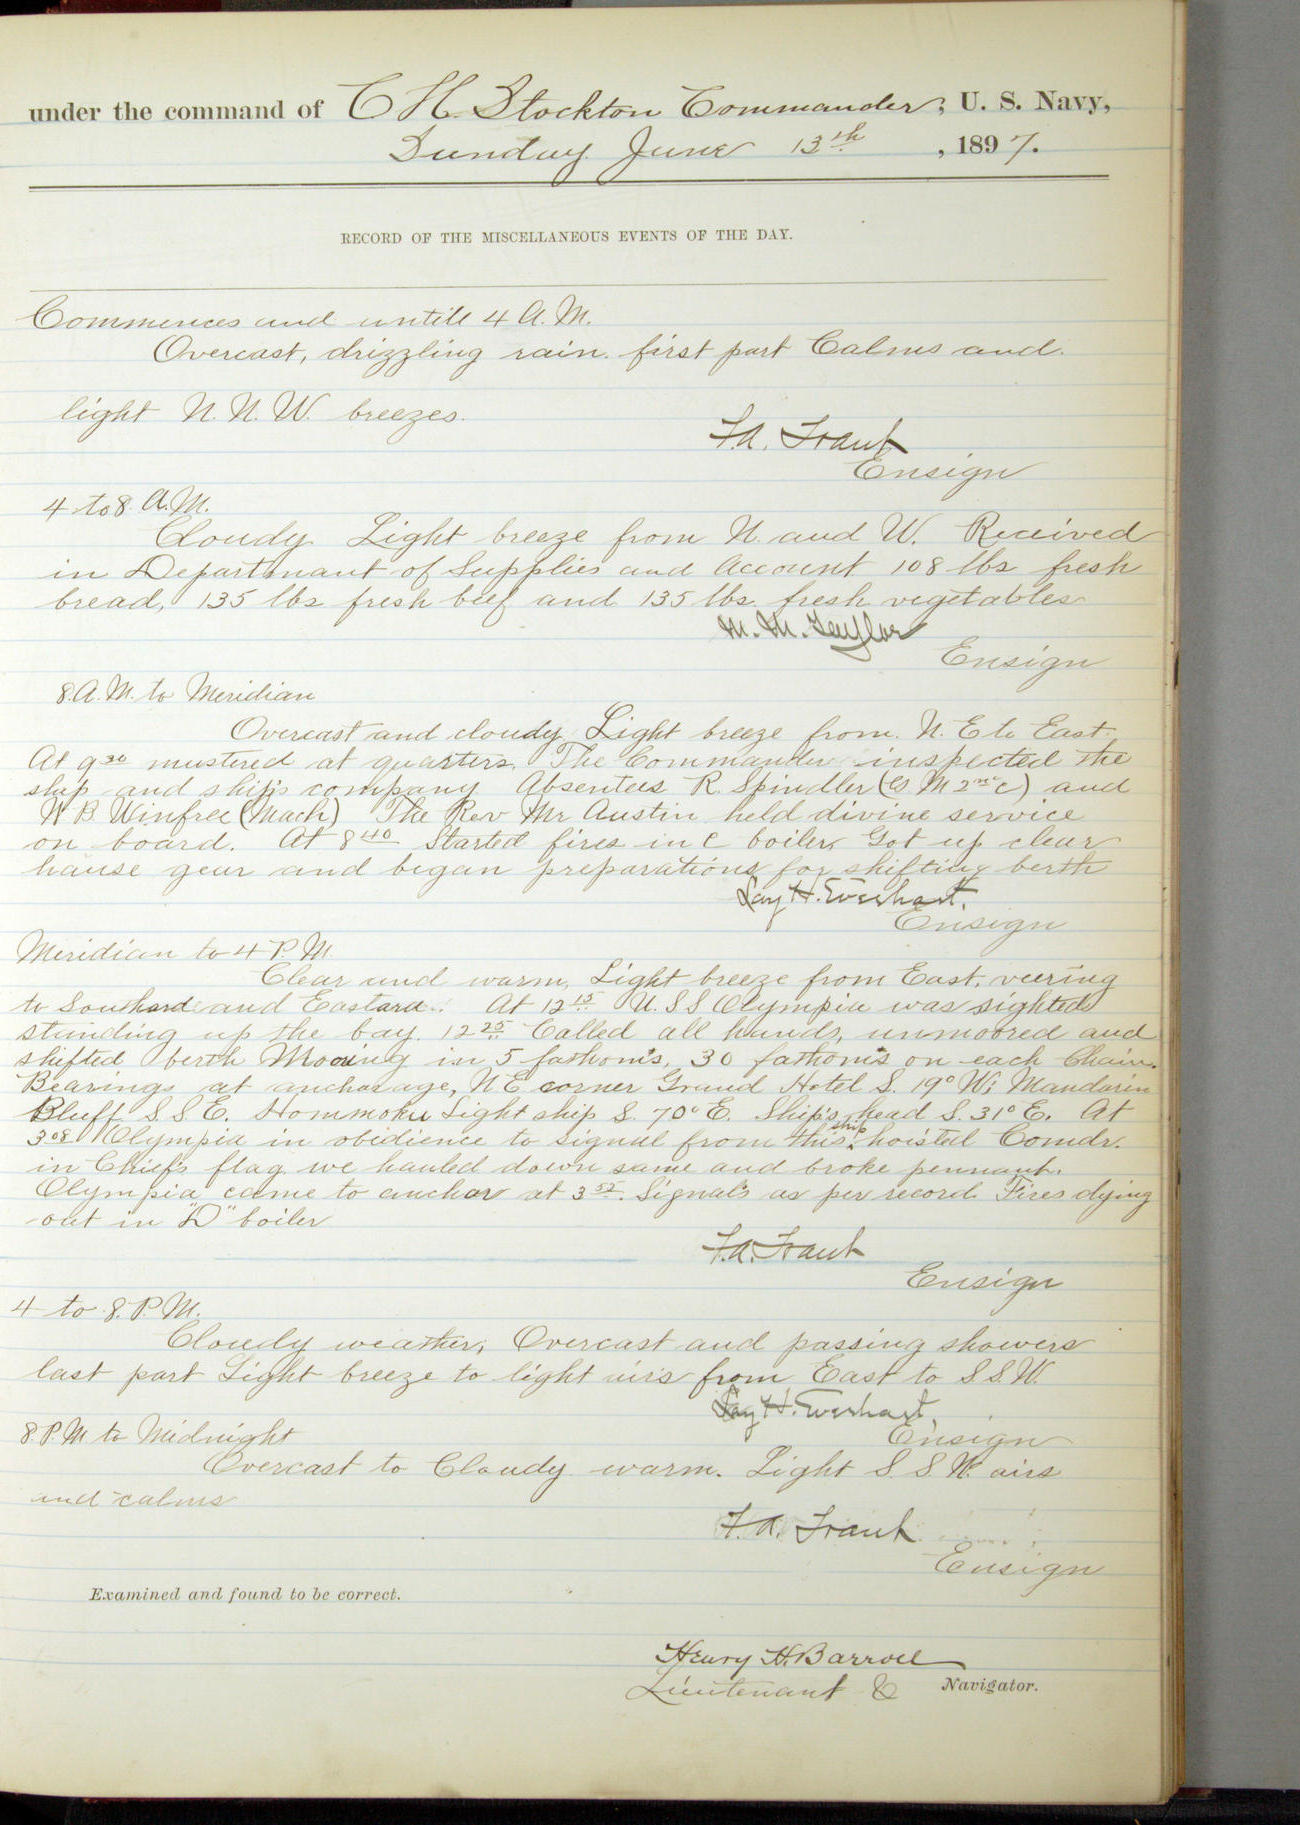 under the command of C H Stockton Commander, U. S. Navy,
Sunday June 13th, 1897.
RECORD OF THE MISCELLANEOUS EVENTS OF THE DAY.
Commences and untill 4 A.M.
Overcast, drizzling rain. first part Calms and
light N. N. W. breezes.
F.A. Traut
Ensign
4 to 8 A.M.
Cloudy Light breeze from N. and W. Received
in Departmant of Supplies and Account 108 lbs fresh
bread, 135 lbs fresh beef and 135 lbs. fresh vegetables
M. M. Taylor
Ensign
8. A. M. to Meridian
Overcast and cloudy Light breeze from N. E to East.
At 9 30 mustered at quarters. The Commander inspected the
ship and ship's company Absentees R. Spindler (G M 2nd c) and
W B Winfree (Mach) The Rev Mr Austin held divine service
on board. At 8 40 Started fires in C boiler, Got up clear
hause gear and began preparations for shifting berth
Lay H. Everhart,
Ensign
Meridian to 4 P. M
Clear and warm, Light breeze from East, veering
to Southard and Eastard. At 12 15 U. S S Olympia was sighted
standing up the bay. 12 25 Called all hands, unmoored and
shifted berth Mooring in 5 fathoms, 30 fathoms on each Chain.
Bearings at anchorage, NE corner Grand Hotel S. 19° W; Mandarin
Bluff S S E. Hommoku Light ship S. 70° E. Ship's head S. 31° E. At
3 08 Olympia in obidience to signal from this ship hoisted Comdr.
in Chief's flag. we hauled down same and broke pennant.
Olympia came to anchor at 3 52. Signals as per record. Fires dying
out in "D" boiler
F.A. Traut
Ensign
4 to 8. P. M.
Cloudy weather, Overcast and passing showers
last part Light breeze to light airs from East to S S. W.
Lay H. Everhart,
Ensign
8. P. M. to Midnight
Overcast to Cloudy warm. Light S S W. airs
and calms
F. A. Traut
Ensign
Examined and found to be correct.
Henry H. Barroll
Lieutenant & Navigator.